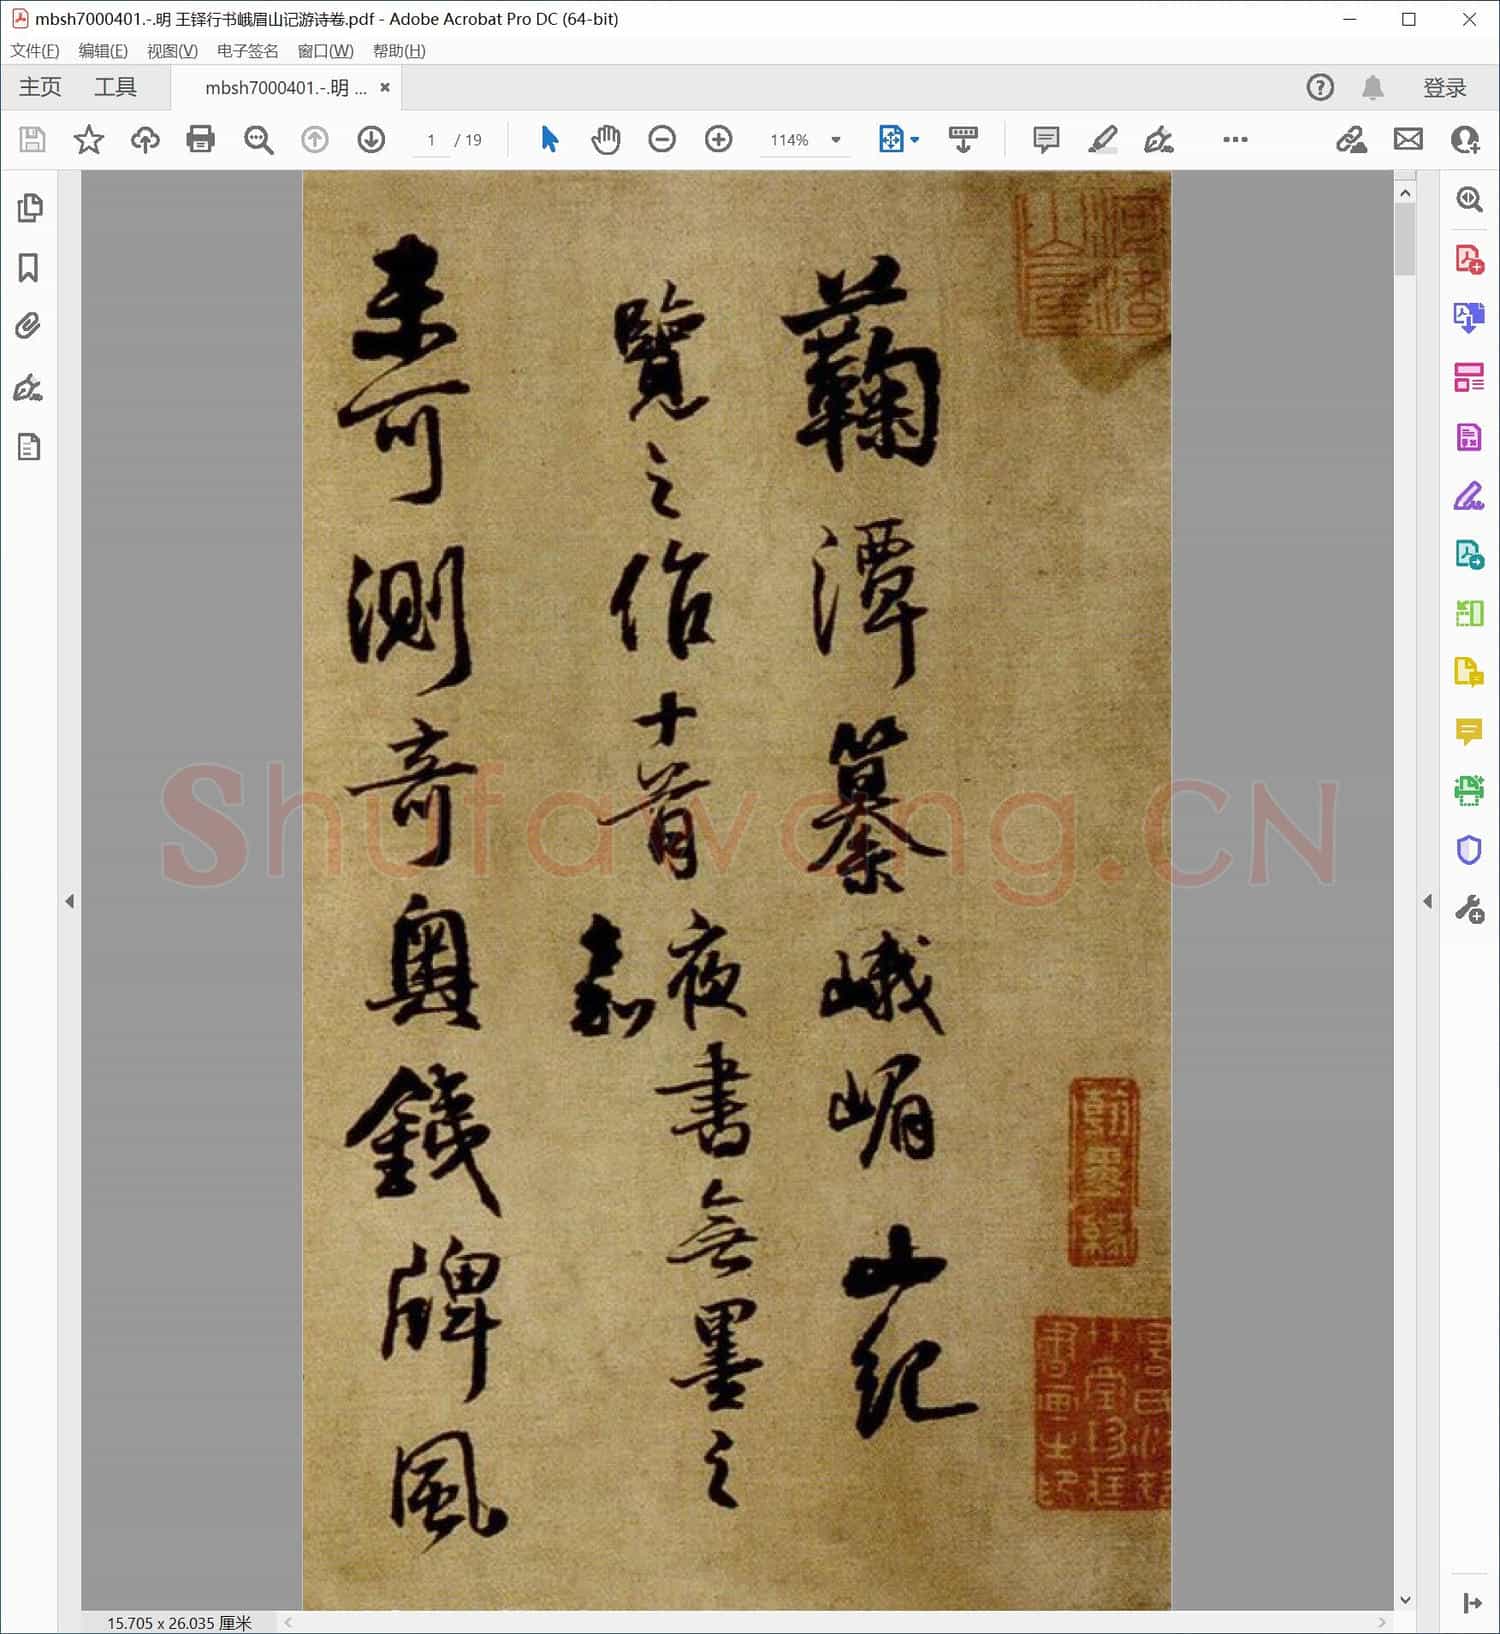 mbsh7000401.-.明 王铎行书峨眉山记游诗卷.pdf - Adobe Acrobat Pro DC (64-bit)
文件(F) 编辑(E) 视图(V) 电子签名 窗口(W) 帮助(H)
主页 工具 mbsh7000401.-.明 ... 登录
1 / 19 114%
蘜潭纂峨嵋山紀
覽之作十首夜書無墨之
嘉
未可測奇奧錢牌風
翰墨緣
Shufawang.CN
15.705 x 26.035 厘米